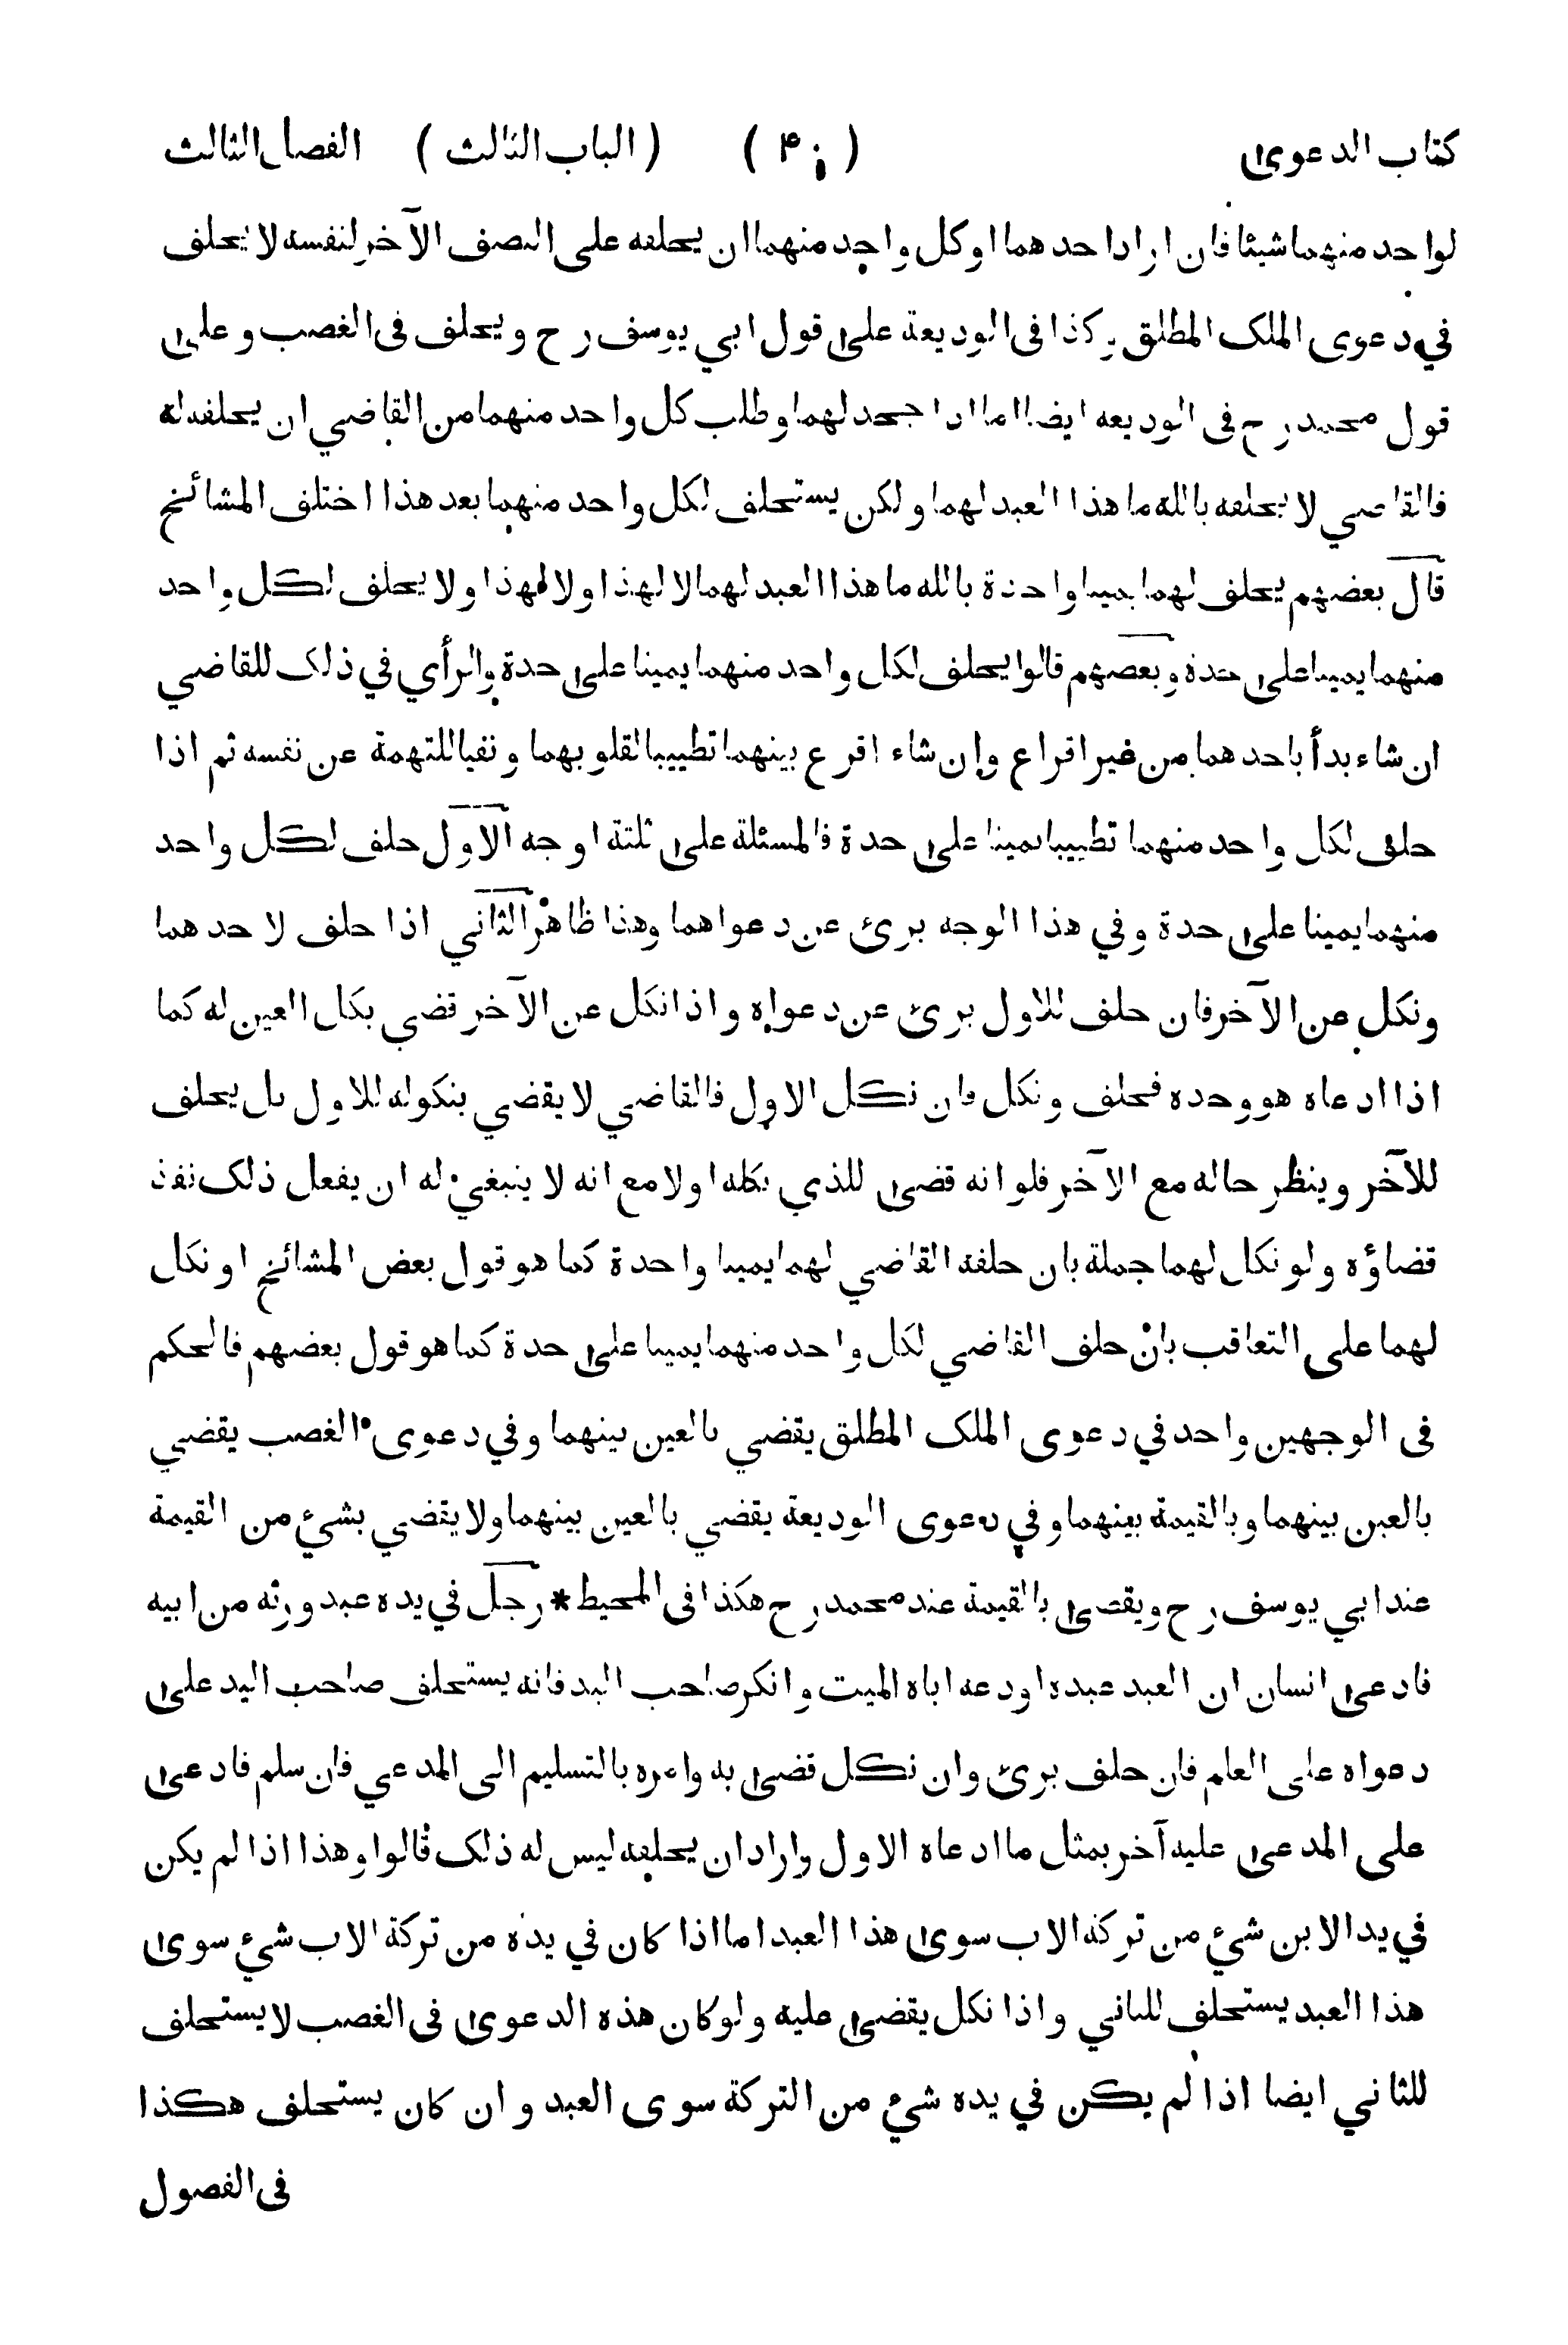 كتاب الدعوى ( ۴۰ ) ( الباب الثالث ) الفصل الثالث
لواحد منهما شيئا فان اراد احدهما او كل واحد منهما ان يحلفه على النصف الآخر لنفسه لا يحلف
في دعوى الملك المطلق وكذا فى الوديعة على قول ابي يوسف رح ويحلف فى الغصب وعلى
قول محمد رح فى الوديعه ايضا اما اذا جحد لهما وطلب كل واحد منهما من القاضي ان يحلفه له
فالقاضي لا يحلفه بالله ما هذا العبد لهما ولكن يستحلف لكل واحد منهما بعد هذا اختلف المشائخ
قال بعضهم يحلف لهما يمينا واحدة بالله ما هذا العبد لهما لا لهذا ولا لهذا ولا يحلف لكل واحد
منهما يمينا على حدة وبعضهم قالوا يحلف لكل واحد منهما يمينا على حدة والرأي في ذلك للقاضي
ان شاء بدأ باحدهما من غير اقراع وان شاء اقرع بينهما تطييبا لقلوبهما ونفيا للتهمة عن نفسه ثم اذا
حلف لكل واحد منهما تطييبا يمينا على حدة فالمسئلة على ثلثة اوجه الاول حلف لكل واحد
منهما يمينا على حدة وفي هذا الوجه برئ عن دعواهما وهذا ظاهر الثاني اذا حلف لاحدهما
ونكل عن الآخر فان حلف للاول برئ عن دعواه واذا نكل عن الآخر قضى بكل العين له كما
اذا ادعاه هو وحده فحلف ونكل وان نكل الاول فالقاضي لا يقضي بنكوله للاول بل يحلف
للآخر وينظر حاله مع الآخر فلو انه قضى للذي نكله اولا مع انه لا ينبغي له ان يفعل ذلك نفذ
قضاؤه ولو نكل لهما جملة بان حلفه القاضي لهما يمينا واحدة كما هو قول بعض المشائخ او نكل
لهما على التعاقب بان حلف القاضي لكل واحد منهما يمينا على حدة كما هو قول بعضهم فالحكم
فى الوجهين واحد في دعوى الملك المطلق يقضي بالعين بينهما وفي دعوى الغصب يقضي
بالعين بينهما وبالقيمة بينهما وفي دعوى الوديعة يقضي بالعين بينهما ولا يقضي بشئ من القيمة
عند ابي يوسف رح ويقضى بالقيمة عند محمد رح هكذا فى المحيط * رجل في يده عبد ورثه من ابيه
فادعى انسان ان العبد عبده اودعه اباه الميت وانكر صاحب اليد فانه يستحلف صاحب اليد على
دعواه على العلم فان حلف برئ وان نكل قضى به وامره بالتسليم الى المدعي فان سلم فادعى
على المدعى عليه آخر بمثل ما ادعاه الاول واراد ان يحلفه ليس له ذلك قالوا وهذا اذا لم يكن
في يد الابن شئ من تركة الاب سوى هذا العبد اما اذا كان في يده من تركة الاب شئ سوى
هذا العبد يستحلف للثاني واذا نكل يقضى عليه ولو كان هذه الدعوى فى الغصب لا يستحلف
للثاني ايضا اذا لم يكن في يده شئ من التركة سوى العبد وان كان يستحلف هكذا
فى الفصول